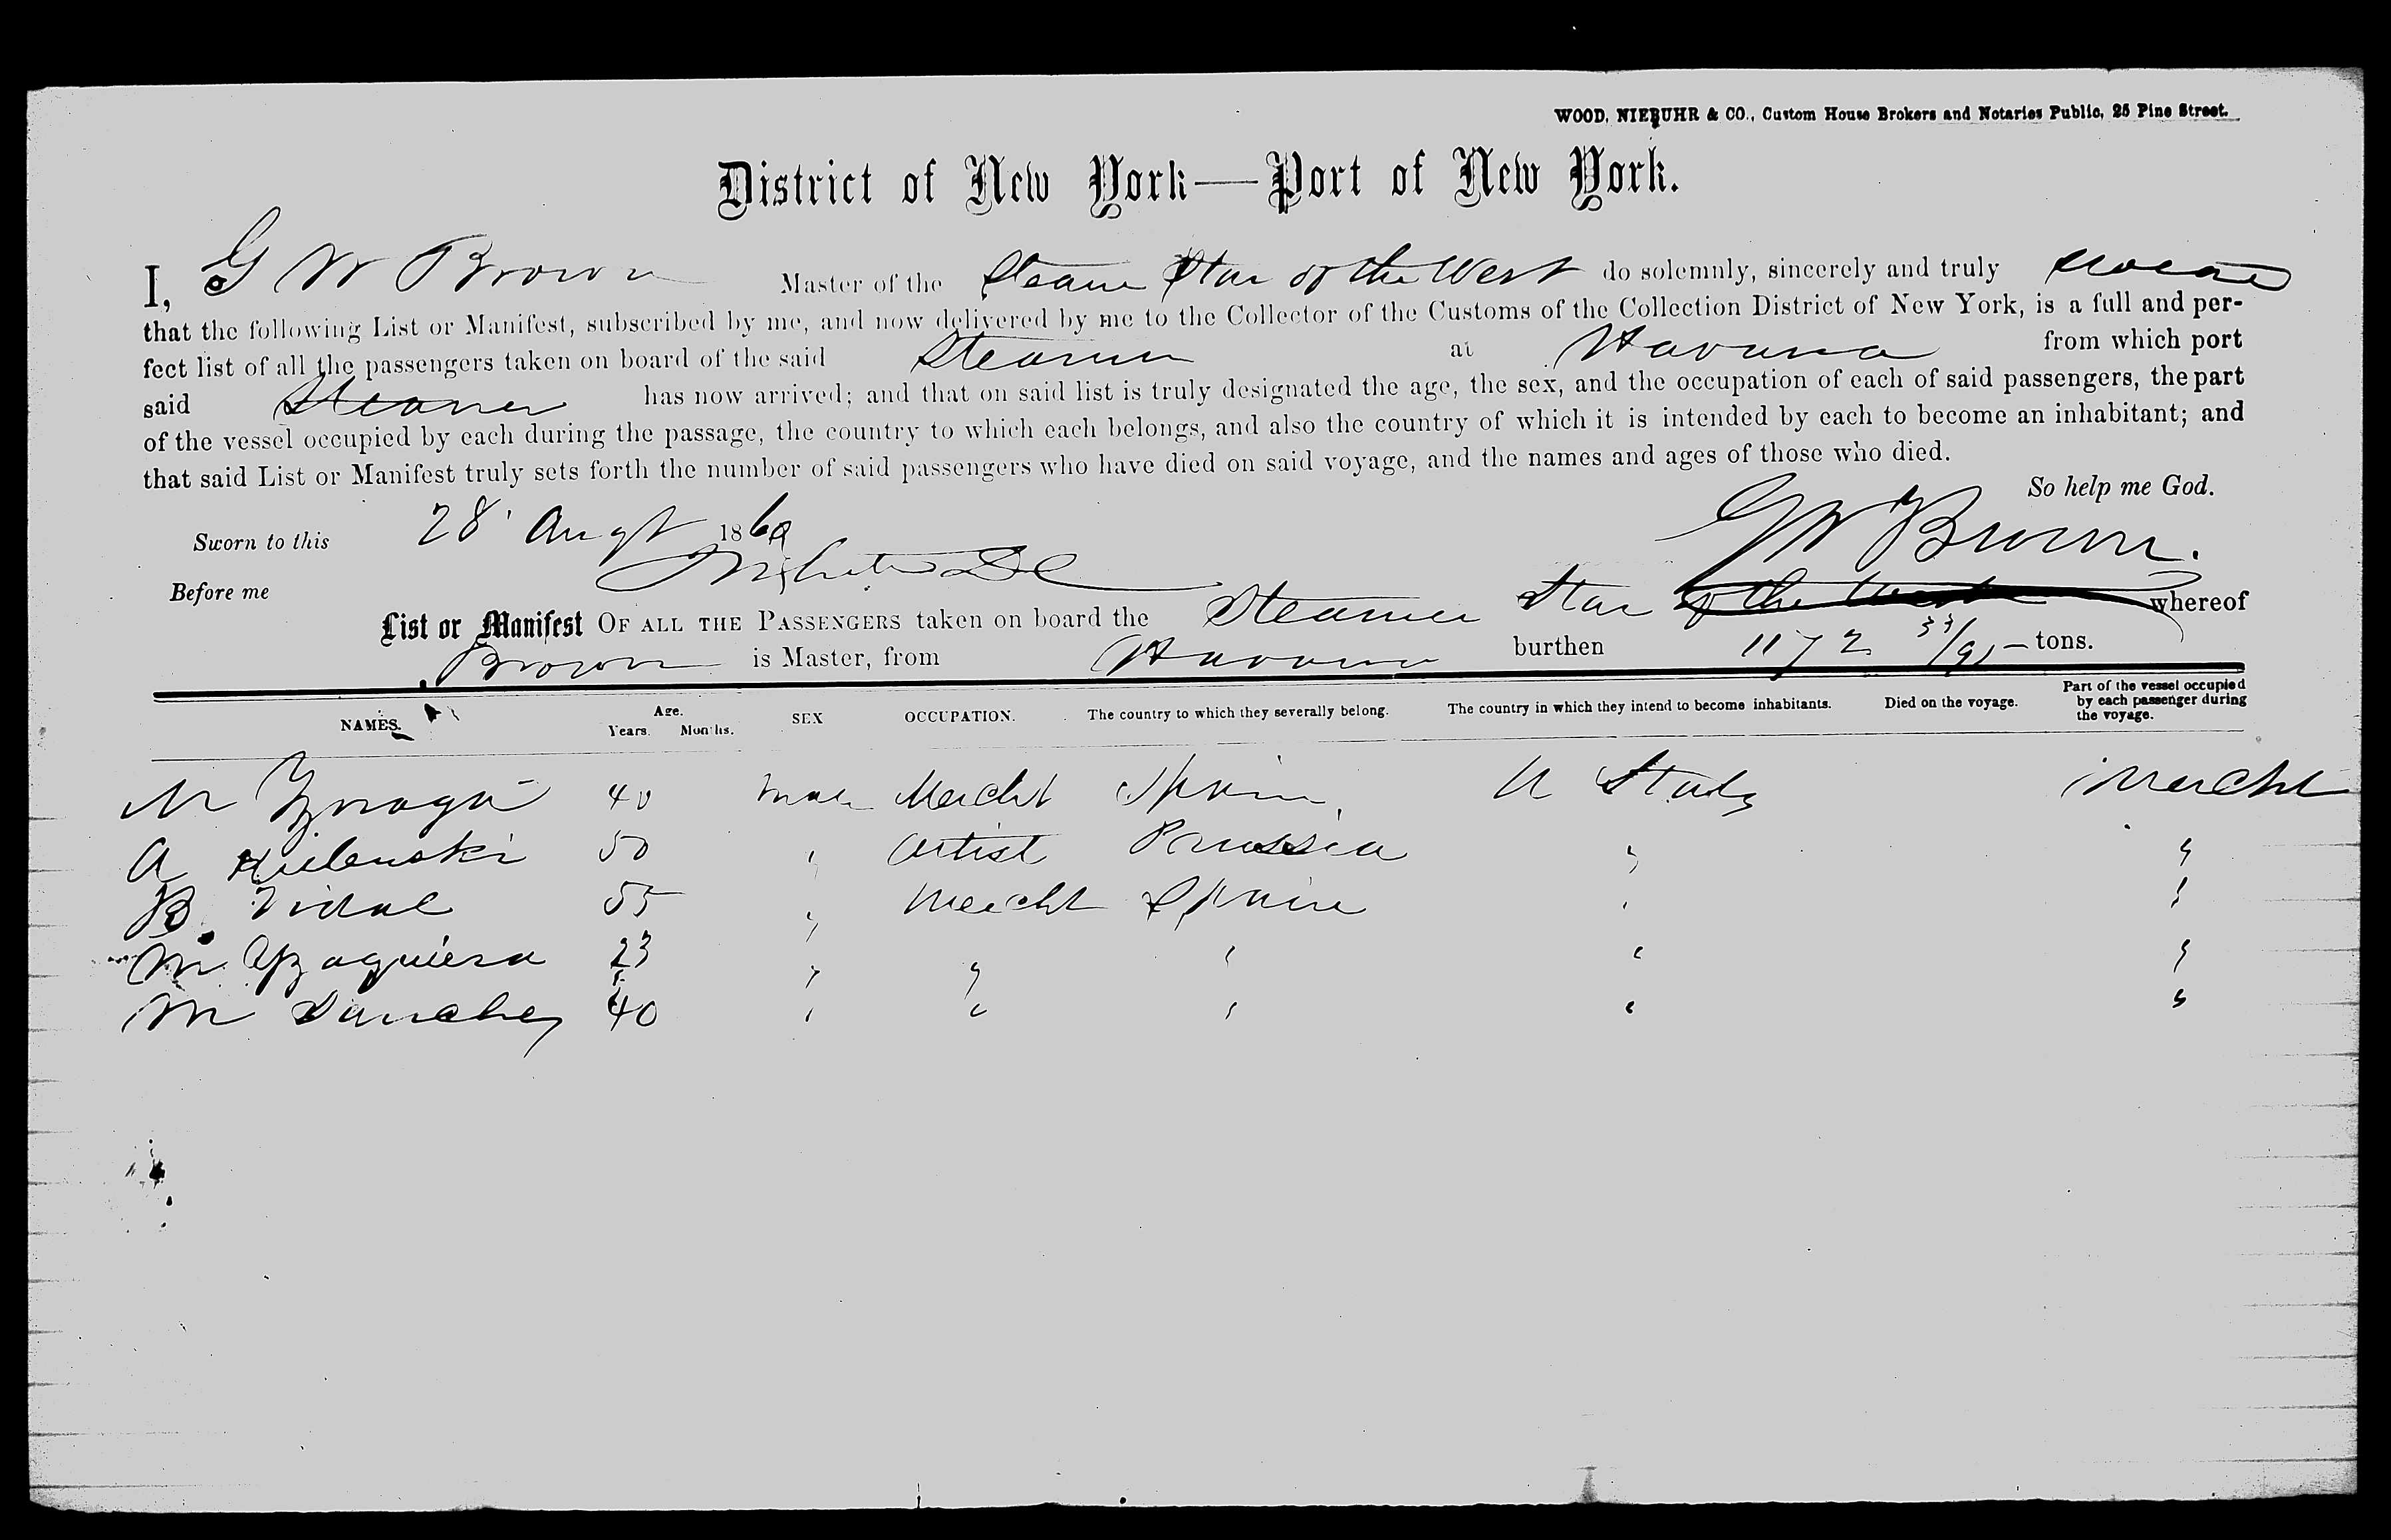 WOOD, NIEBUHR & CO., Custom House Brokers and Notaries Public, 25 Pine Street.
District of New York—Port of New York.
I, G W Brown Master of the Steamer Star of the West do solemnly, sincerely and truly swear
that the following List or Manifest, subscribed by me, and now delivered by me to the Collector of the Customs of the Collection District of New York, is a full and per-
fect list of all the passengers taken on board of the said Steamer at Havana from which port
said Steamer has now arrived; and that on said list is truly designated the age, the sex, and the occupation of each of said passengers, the part
of the vessel occupied by each during the passage, the country to which each belongs, and also the country of which it is intended by each to become an inhabitant; and
that said List or Manifest truly sets forth the number of said passengers who have died on said voyage, and the names and ages of those who died.
So help me God.
Sworn to this 28 Augt 1860 GW Brown.
Before me
List or Manifest OF ALL THE PASSENGERS taken on board the Steamer Star of the West whereof
Brown is Master, from Havana burthen 1172 33/95 tons.
NAMES. Age. Years. Months. SEX OCCUPATION. The country to which they severally belong. The country in which they intend to become inhabitants. Died on the voyage. Part of the vessel occupied by each passenger during the voyage.
40 Male Mercht Spain U States
A 50 " Artist Prussia " "
B Vidal 55 " Mercht Spain " "
M 23 " " " " "
M Sanchez 40 " " " " "